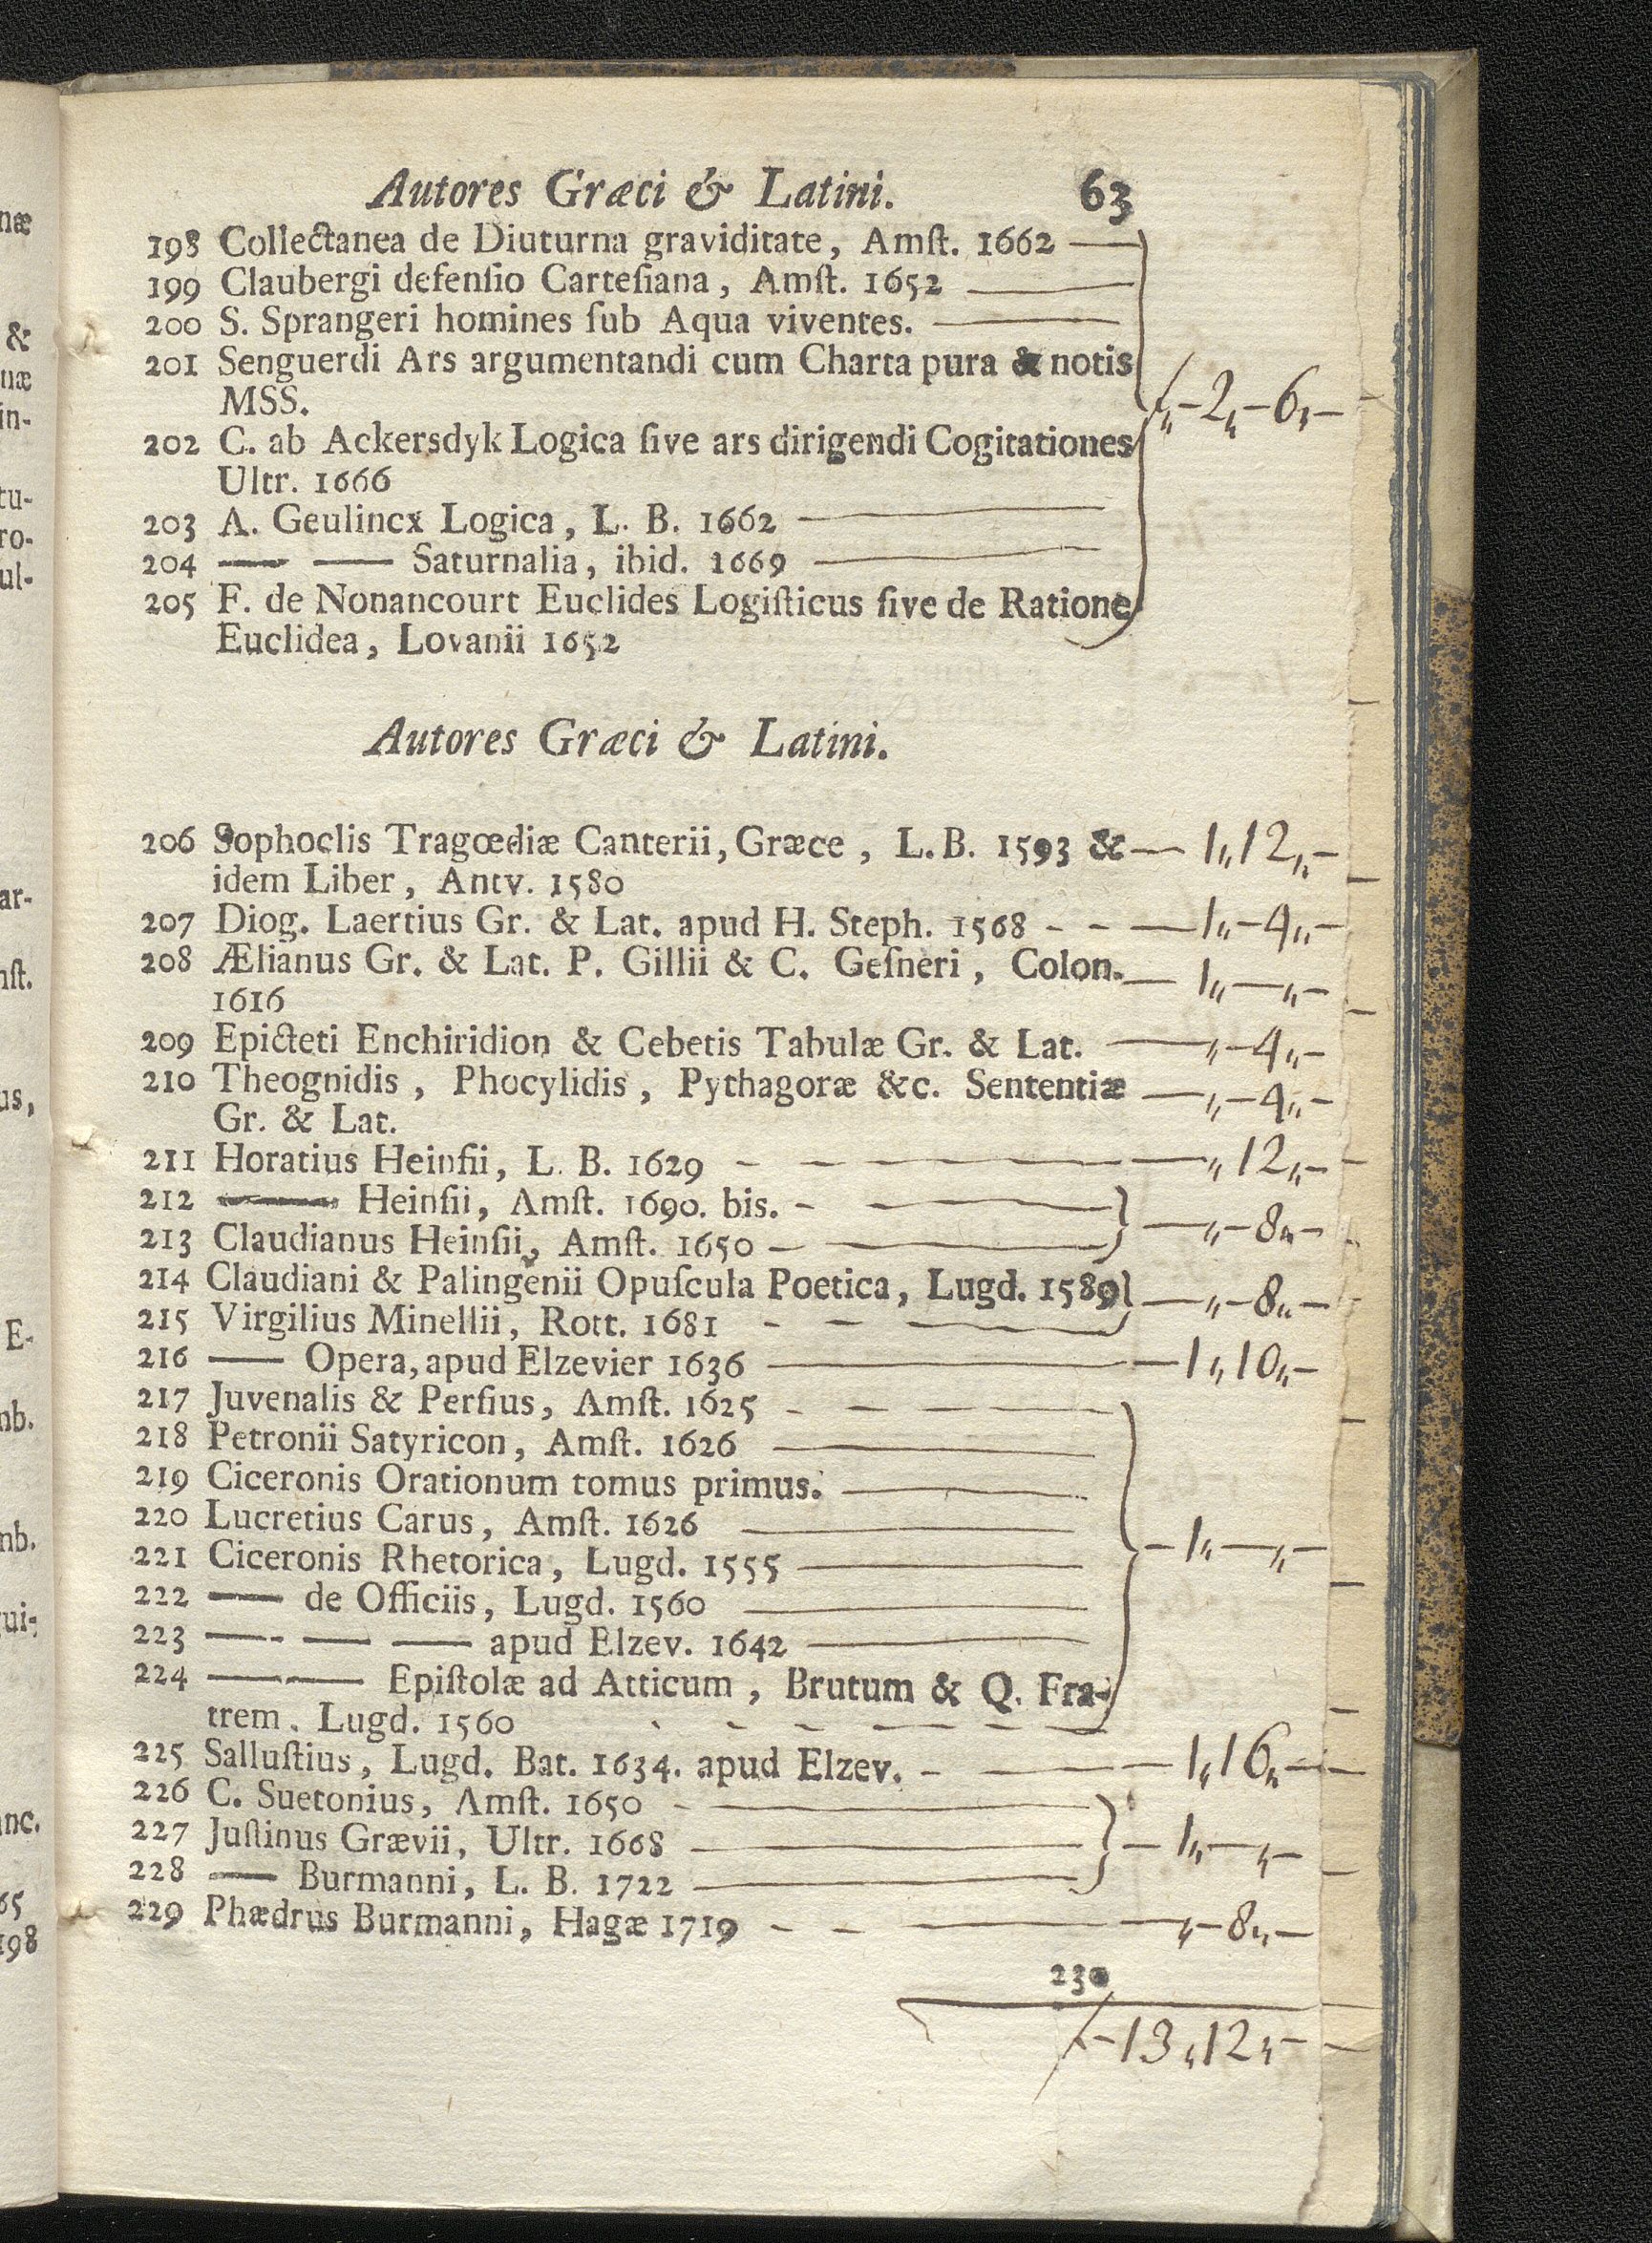 Autores Græci & Latini. 63
198 Collectanea de Diuturna graviditate, Amſt. 1662
199 Claubergi defenſio Carteſiana, Amſt. 1652
200 S. Sprangeri homines ſub Aqua viventes.
201 Senguerdi Ars argumentandi cum Charta pura & notis
MSS.
„-2„-6„-
202 C. ab Ackersdyk Logica ſive ars dirigendi Cogitationes
Ultr. 1666
203 A. Geulincx Logica, L. B. 1662
204 — — Saturnalia, ibid. 1669
205 F. de Nonancourt Euclides Logiſticus ſive de Ratione
Euclidea, Lovanii 1652
Autores Græci & Latini.
206 Sophoclis Tragœdiæ Canterii, Græce, L. B. 1593 & — 1„12„-
idem Liber, Antv. 1580
207 Diog. Laertius Gr. & Lat. apud H. Steph. 1568 - - — 1„-4„-
208 Ælianus Gr. & Lat. P. Gillii & C. Geſneri, Colon. — 1„—„-
1616
209 Epicteti Enchiridion & Cebetis Tabulæ Gr. & Lat. —„-4„-
210 Theognidis, Phocylidis, Pythagoræ &c. Sententiæ —„-4„-
Gr. & Lat.
211 Horatius Heinſii, L. B. 1629 - —„12„-
212 — Heinſii, Amſt. 1690. bis. -
213 Claudianus Heinſii, Amſt. 1650 —„-8„-
214 Claudiani & Palingenii Opuſcula Poetica, Lugd. 1589 —„-8„-
215 Virgilius Minellii, Rott. 1681 - -
216 — Opera, apud Elzevier 1636 — 1„10„-
217 Juvenalis & Perſius, Amſt. 1625
218 Petronii Satyricon, Amſt. 1626
219 Ciceronis Orationum tomus primus.
220 Lucretius Carus, Amſt. 1626
221 Ciceronis Rhetorica, Lugd. 1555 - 1„—„-
222 — de Officiis, Lugd. 1560
223 — — — apud Elzev. 1642
224 — — Epiſtolæ ad Atticum, Brutum & Q. Fra-
trem. Lugd. 1560
225 Salluſtius, Lugd. Bat. 1634. apud Elzev. - — 1„16„-
226 C. Suetonius, Amſt. 1650
227 Juſtinus Grævii, Ultr. 1668 - 1„—„-
228 — Burmanni, L. B. 1722
229 Phædrus Burmanni, Hagæ 1719 - - —„-8„-
230
-13„12„-